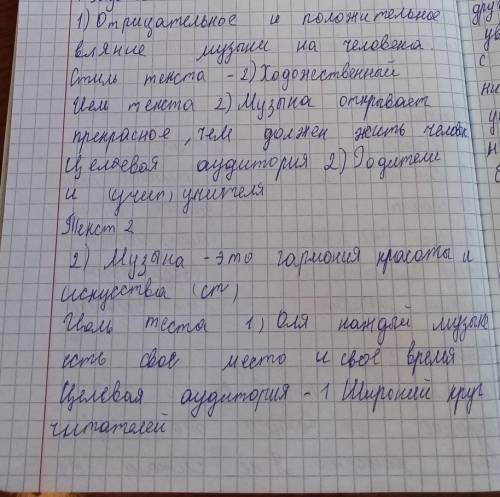 1) Отрицательное и положительное
вляние музыки на человека.
Стиль текста - 2) Ходожественный
Цель текста 2) Музыка открывает
прекрасное, чем должен жить челов
Целевая аудитория 2) Родители
и (учит) учителя
Текст 2
2) Музыка - это гармония красоты и
искусства (ст)
Цель теста 1) Для каждый музык
есть свое место и свое время
Целевая аудитория - 1 Широкий круг
читателей